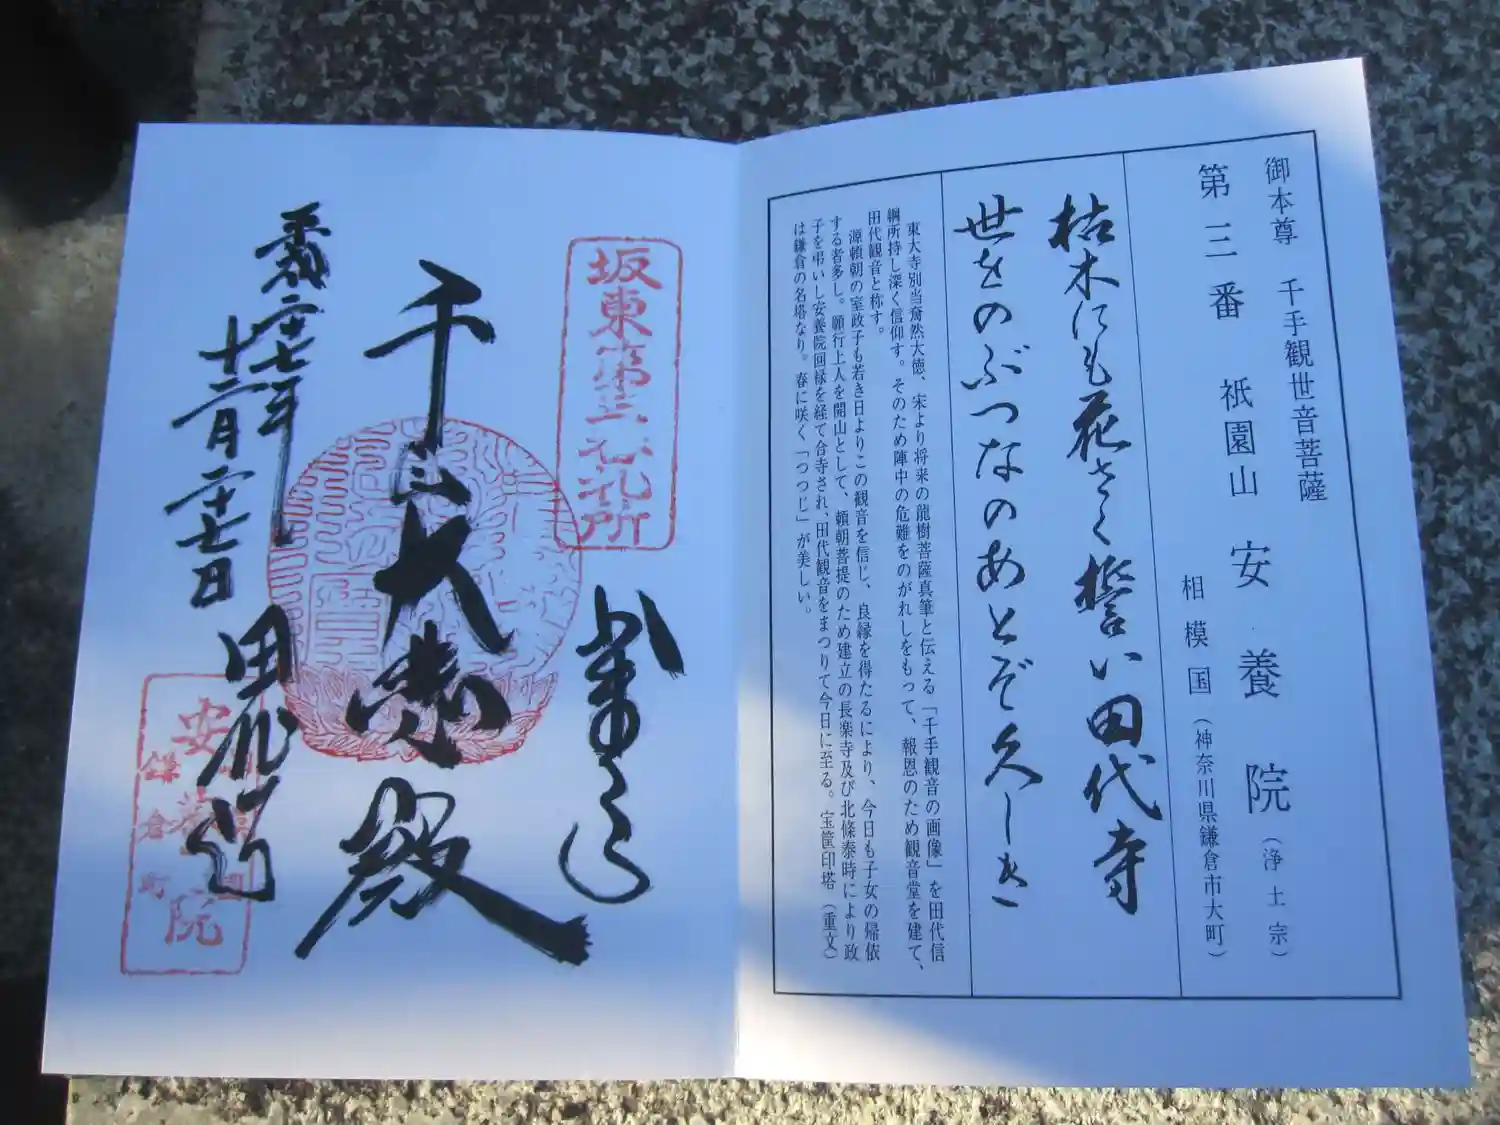 御本尊 千手観世音菩薩
第三番 祇園山 安養院(浄土宗)
相模国(神奈川県鎌倉市大町)
枯木にも花さく誓い田代寺
世をのぶつなのあとぞ久しき
東大寺別当奝然大徳、宋より将来の龍樹菩薩真筆と伝える「千手観音の画像」を田代信
綱所持し深く信仰す。そのため陣中の危難をのがれしをもって、報恩のため観音堂を建て、
田代観音と称す。
源頼朝の室政子も若き日よりこの観音を信じ、良縁を得たるにより、今日も子女の帰依
する者多し。願行上人を開山として、頼朝菩提のため建立の長楽寺及び北條泰時により政
子を弔いし安養院回禄を経て合寺され、田代観音をまつりて今日に至る。宝筺印塔(重文)
は鎌倉の名塔なり。春に咲く「つつじ」が美しい。
坂東第三札所
奉拝
千手大悲殿
平成二十七年
十二月二十七日
田代寺
安養院
鎌倉町